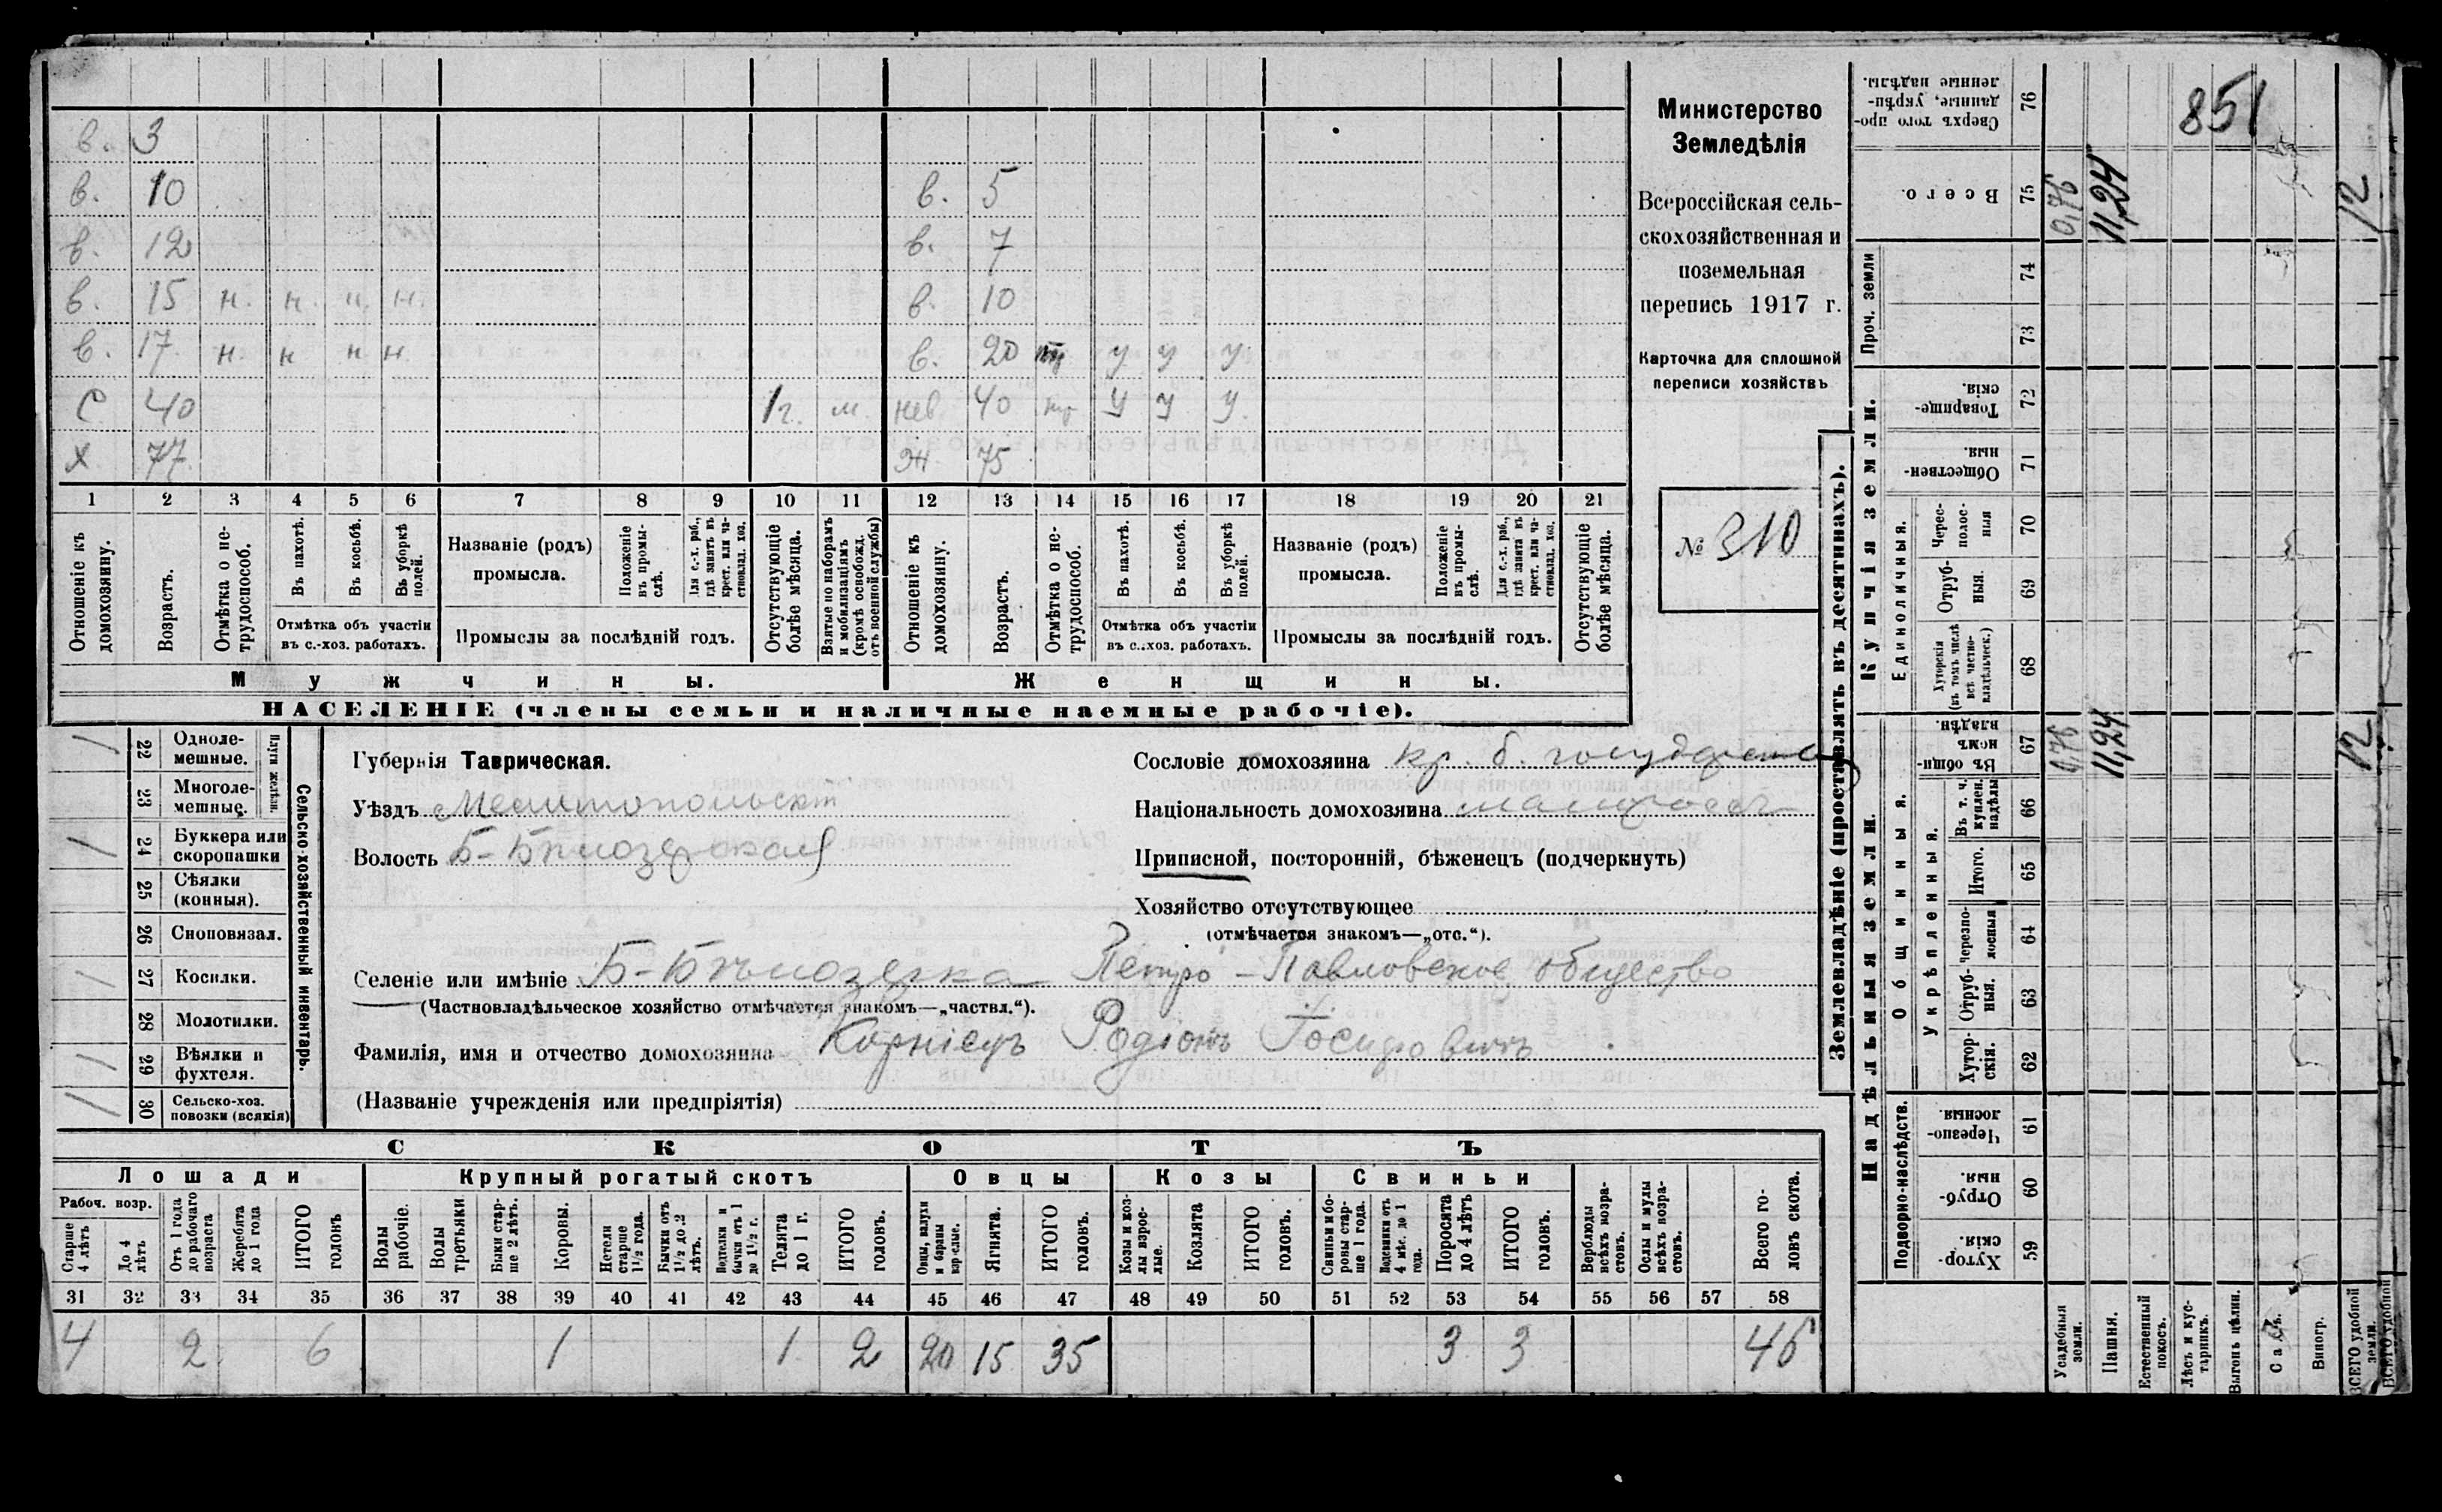 в. 3
в. 10 в. 5
в. 12 в. 7
в. 15 н. н. н. н. в. 10
в. 17 н. н н н. в. 20 у у у.
С 40 1г. м. нев 40 у у у.
Х 77 Ж 75
1 2 3 4 5 6 7 8 9 10 11 12 13 14 15 16 17 18 19 20 21
Отношеніе къ домохозяину.
Возрастъ.
Отмѣтка о нетрудоспособ.
Въ пахотѣ.
Въ косьбѣ.
Въ уборкѣ полей.
Отмѣтка объ участіи въ с.-хоз. работахъ.
Названіе (родъ) промысла.
Положеніе въ промыслѣ.
Для с.-х. раб., гдѣ занятъ въ крест. или частновлад. хоз.
Промыслы за послѣдній годъ.
Отсутствующіе болѣе мѣсяца.
Взятые по наборамъ и мобилизаціямъ (кромѣ освобожд. отъ военной службы)
Отношеніе къ домохозяину.
Возрастъ.
Отмѣтка о нетрудоспособ.
Въ пахотѣ.
Въ косьбѣ.
Въ уборкѣ полей.
Отмѣтка объ участіи въ с.-хоз. работахъ.
Названіе (родъ) промысла.
Положеніе въ промыслѣ.
Для с.-х. раб., гдѣ занята въ крест. или частновлад. хоз.
Промыслы за послѣдній годъ.
Отсутствующіе болѣе мѣсяца.
Мужчины. Женщины.
НАСЕЛЕНІЕ (члены семьи и наличные наемные рабочіе).
Министерство
Земледѣлія
Всероссійская сель-
скохозяйственная и
поземельная
перепись 1917 г.
Карточка для сплошной
переписи хозяйствъ
№ 310
/ 22 Однолемешные.
23 Многолемешные.
Плуги желѣзн.
/ 24 Буккера или скоропашки
25 Сѣялки (конныя).
26 Сноповязал.
/ 27 Косилки.
28 Молотилки.
/ 29 Вѣялки и фухтеля.
/ 30 Сельско-хоз. повозки (всякія)
Сельско-хозяйственный инвентарь.
Губернія Таврическая.
Уѣздъ Мелитопольскій
Волость Б-Бѣлозерская
Сословіе домохозяина кр. б. государств
Національность домохозяина малороссъ
Приписной, посторонній, бѣженецъ (подчеркнуть)
Хозяйство отсутствующее
(отмѣчается знакомъ—„отс.“).
Селеніе или имѣніе Б-Бѣлозерка Петро-Павловское общество
(Частновладѣльческое хозяйство отмѣчается знакомъ—„частвл.“).
Фамилія, имя и отчество домохозяина Корніецъ Родіонъ Іосифовичъ
(Названіе учрежденія или предпріятія)
СКОТЪ
Лошади Крупный рогатый скотъ Овцы Козы Свиньи
Рабоч. возр.
Старше 4 лѣтъ
До 4 лѣтъ
Отъ 1 года до рабочаго возраста
Жеребята до 1 года
ИТОГО головъ
Волы рабочіе.
Волы третьяки
Быки старше 2 лѣтъ.
Коровы.
Нетели старше 1½ года.
Бычки отъ 1½ до 2 лѣтъ.
Подтелки и бычки отъ 1 до 1½ г.
Телята до 1 г.
ИТОГО головъ.
Овцы, валухи и бараны взрослые.
Ягнята.
ИТОГО головъ.
Козы и козлы взрослые.
Козлята
ИТОГО головъ.
Свиньи и боровы старше 1 года.
Подсвинки отъ 4 мѣс. до 1 года.
Поросята до 4 лѣтъ
ИТОГО головъ.
Верблюды всѣхъ возрастовъ.
Ослы и мулы всѣхъ возрастовъ.
Всего головъ скота.
31 32 33 34 35 36 37 38 39 40 41 42 43 44 45 46 47 48 49 50 51 52 53 54 55 56 57 58
4 2 6 1 1 2 20 15 35 3 3 46
Землевладѣніе (проставлять въ десятинахъ).
Купчія земли.
Надѣльныя земли.
Сверхъ того проданные, укрѣпленные надѣлы. 76
851
Всего. 75 0,76 11,24 12
Проч. земли 74
73
Товарищескія. 72
Общественныя. 71
Единоличныя.
Чересполосныя 70
Отрубныя. 69
Хуторскія (въ томъ числѣ всѣ частновладѣльческ.) 68
Общинныя.
Въ общинномъ владѣн. 67 0,76 11,24 12
Укрѣпленныя.
Въ т. ч. куплен. надѣлы 66
Итого. 65
Черезполосныя 64
Отрубныя. 63
Хуторскія. 62
Подворно-наслѣдств.
Черезполосныя. 61
Отрубныя. 60
Хуторскія. 59
Усадебныя земли.
Пашня.
Естественный покосъ.
Лѣсъ и кустарникъ.
Выгонъ цѣлин.
Садъ.
Виногр.
ВСЕГО удобной земли.
ВСЕГО удобной